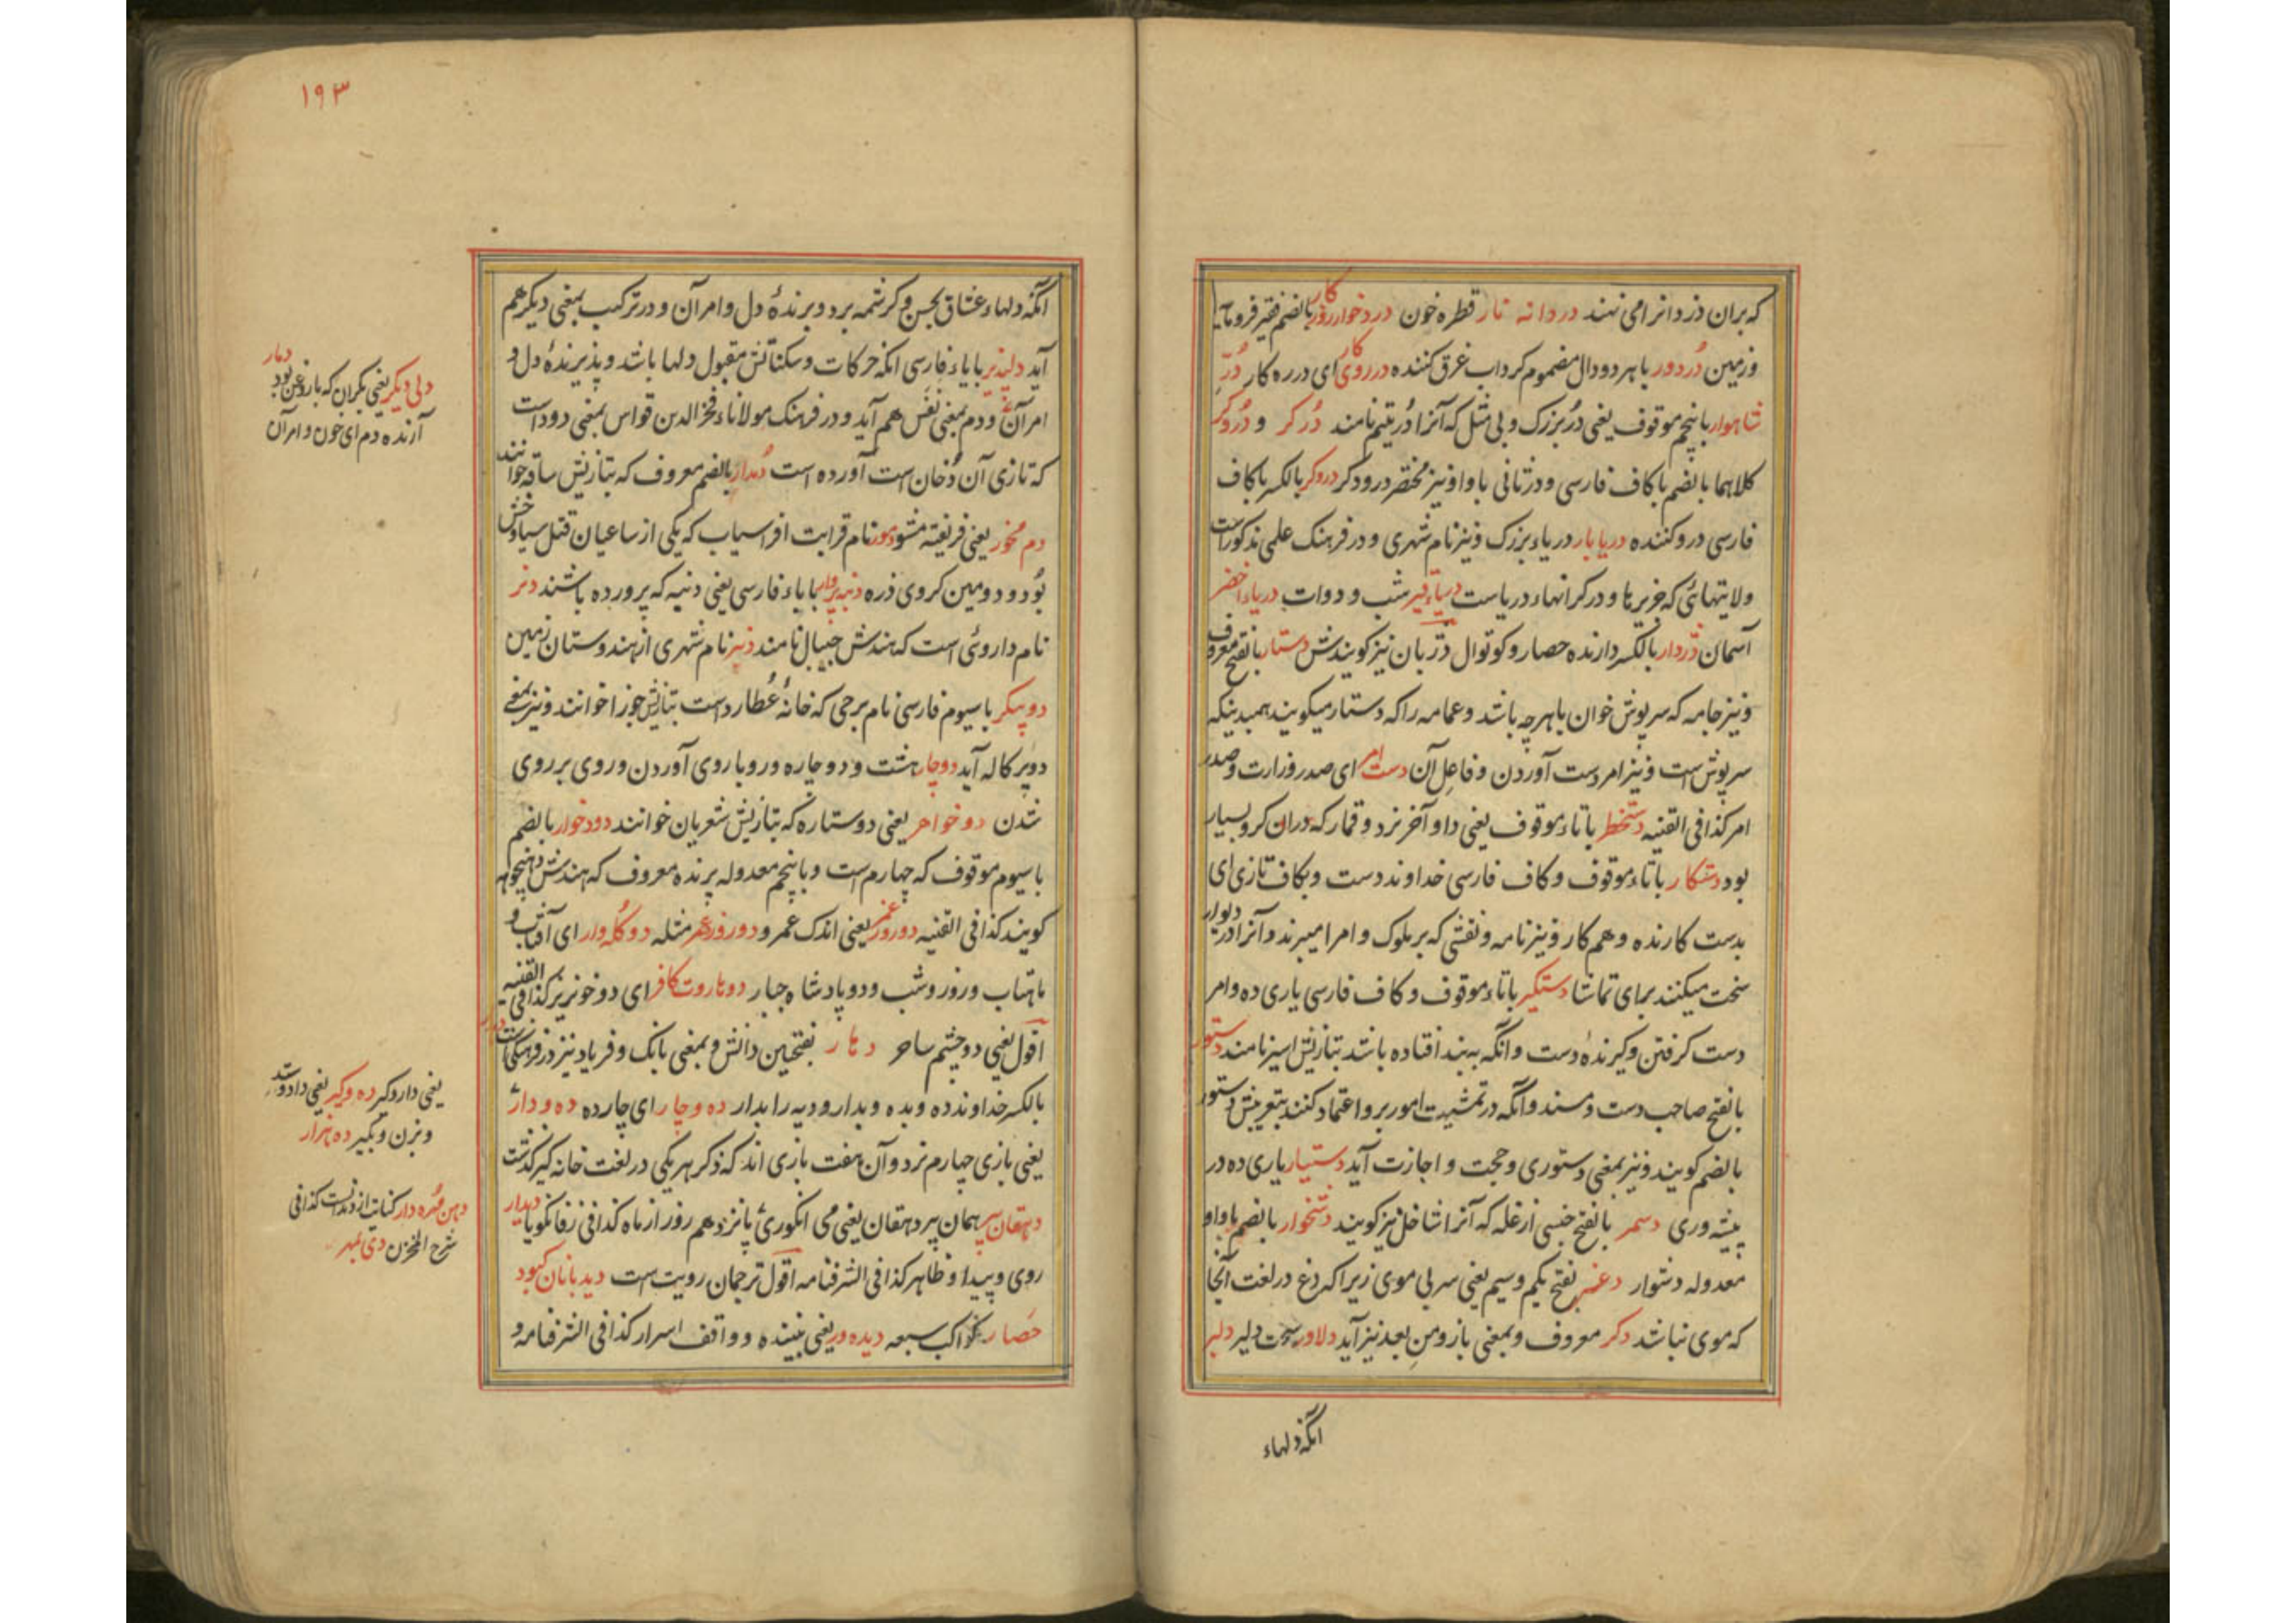 که بران دزدانرا می نهند دردانه نار قطره خون درخوار بالضم فقیر فرومایه
وزمین دُردور باهر دو دال مضموم کرداب غرق کننده درروی کار ای درره کار دُرّ
شاهوار با پنجم موقوف یعنی دُر بزرک و بی مثل که آنرا دُر یتیم نامند دُرکر و دُروکر
کلاهما بالضم با کاف فارسی و در ثانی با واو نیز مختصر درودکر دروکر بالکسر با کاف
فارسی درو کننده دریابار دریاء بزرک و نیز نام شهری و در فرهنک علمی مذکور است
ولایتهائی که جزیرها و در کرانهاء دریاست دریاء قیر شب و دوات دریاء اخضر
آسمان دزدار بالکسر دارنده حصار و کوتوال دزبان نیز کویندش دستار بالفتح معروف
و نیز جامه که سرپوش خوان یا هرچه باشد و عمامه را که دستار میکویند همبدینکه
سرپوش است و نیز امر دست آوردن و فاعل آن دست امر ای صدر وزارت و صدر
امر کذا فی القنیه دستخطر با تاء موقوف یعنی داو آخر نرد و قمار که دران کرو بسیار
بود دستکار با تاء موقوف و کاف فارسی خداوند دست و بکاف تازی ای
بدست کارنده و هم کار و نیز نامه و نقشی که بر ملوک و امرا میبرند و آنرا در دیوار
سخت میکنند برای تماشا دستکیر با تاء موقوف و کاف فارسی یاری ده و امر
دست کرفتن و کیرندهٔ دست و انکه به بند افتاده باشد بتازیش اسیر نامند دستور
بالفتح صاحب دست و مسند و آنکه در تمشیت امور برو اعتماد کنند بتعریبش دستور
بالضم کویند و نیز بمعنی دستوری و حجت و اجازت آید دستیار یاری ده در
پیشه وری دسمر بالفتح جنسی از غله که آنرا شاخل نیز کویند دشخوار بالضم با واو
معدوله دشوار دغسر بفتح یکم و سیم یعنی سر بی موی زیراکه دغ در لغت آنجا
که موی نباشد دکر معروف و بمعنی باز و من بعد نیز آید دلاور سخت دلیر دلبر
انکه دلهاء
۱۹۳
انکه دلهاء عشاق بحسن و کرشمه برد و برندهٔ دل و امر آن و در ترکیب بمعنی دیکر هم
آید دلپذیر با یاء فارسی انکه حرکات و سکناتش مقبول دلها باشد و پذیرندهٔ دل و
امر آن و دم بمعنی نفس هم آید و در فرهنک مولاناء فخر الدین قواس بمعنی دود است
که تازی آن دُخان است آورده است دُمدار بالضم معروف که بتازیش ساقه خوانند
دم مخور یعنی فریفته مشو دمور نام قرابت افراسیاب که یکی از ساعیان قتل سیاوخش
بُود و دومین کروی ذره دنبه پروار با باء فارسی یعنی دنبه که پرورده باشند دنر
نام داروئی است که هندش جیپال نامند دنیر نام شهری از هندوستان زمین
دو پیکر با سیوم فارسی نام برجی که خانهٔ عُطارد است بتازیش جوزا خوانند و نیز بمعنی
دو پرکاله آید دوچار هشت و دوچاره و روباروی آوردن و روی بر روی
شدن دو خواهر یعنی دو ستاره که بتازیش شعریان خوانند دودخوار بالضم
با سیوم موقوف که چهارم است و با پنجم معدوله پرنده معروف که هندش
کویند کذا فی القنیه دوروزه عمر یعنی اندک عمر و دو روز عمر مثله دو کُله وار ای آفتاب و
ماهتاب و روز و شب و دو پادشاه جبار دو هاروت کافر ای دو خونریز کذا فی القنیه
اقول یعنی دو چشم ساحر دهار بفتحتین دانش و بمعنی بانک و فریاد نیز در فرهنکی است
بالکسر خداوند ده و بده و بدار و دیه را بدار ده و چار ای چارده ده و دار
یعنی بازی چهارم نرد و آن هفت بازی اند که ذکر هر یکی در لغت خانه کیر کذشت
دهقان پیر همان پیر دهقان یعنی می انکوری پانزدهم روز از ماه کذا فی زفانکویا دیدار
روی و پیدا و ظاهر کذا فی الشرفنامه اقول ترجمان رویت است دیدبانان کبود
حصار کواکب سبعه دیده ور یعنی بیننده و واقف اسرار کذا فی الشرفنامه و
دمار
دلی دیکر یعنی بکران که باروغن بود
آرنده دم ای خون و امر آن
یعنی دار و کیر ده و کیر یعنی داد و ستد
و بزن و بکیر ده هزار
دهن مُهره دار کنایت از دندانست کذا فی
شرح المخزن دی بمهر